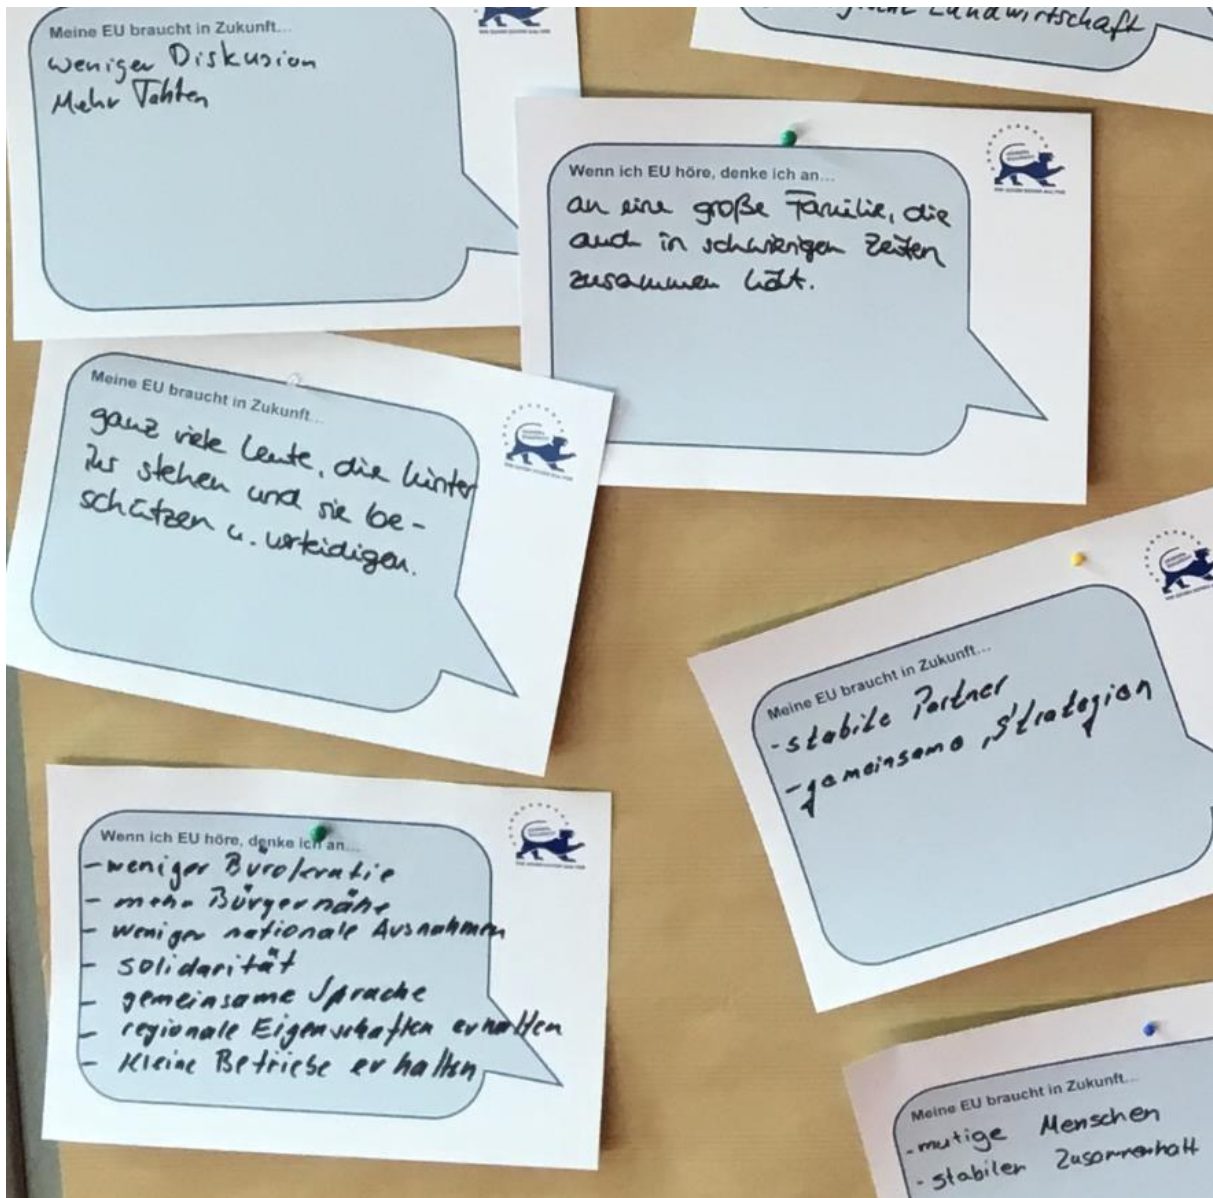 Meine EU braucht in Zukunft...
weniger Diskusion
Mehr Tahten
Landwirtschaft
Wenn ich EU höre, denke ich an...
an eine große Familie, die
auch in schwierigen Zeiten
zusammen hält.
Meine EU braucht in Zukunft...
ganz viele Leute, die hinter
ihr stehen und sie be-
schützen u. verteidigen.
Meine EU braucht in Zukunft...
- stabile Partner
- gemeinsame Strategien
Wenn ich EU höre, denke ich an...
- weniger Bürokratie
- mehr Bürgernähe
- weniger nationale Ausnahmen
- solidarität
- gemeinsame Sprache
- regionale Eigenschaften erhalten
- kleine Betriebe erhalten
Meine EU braucht in Zukunft...
- mutige Menschen
- stabilen Zusammenhalt